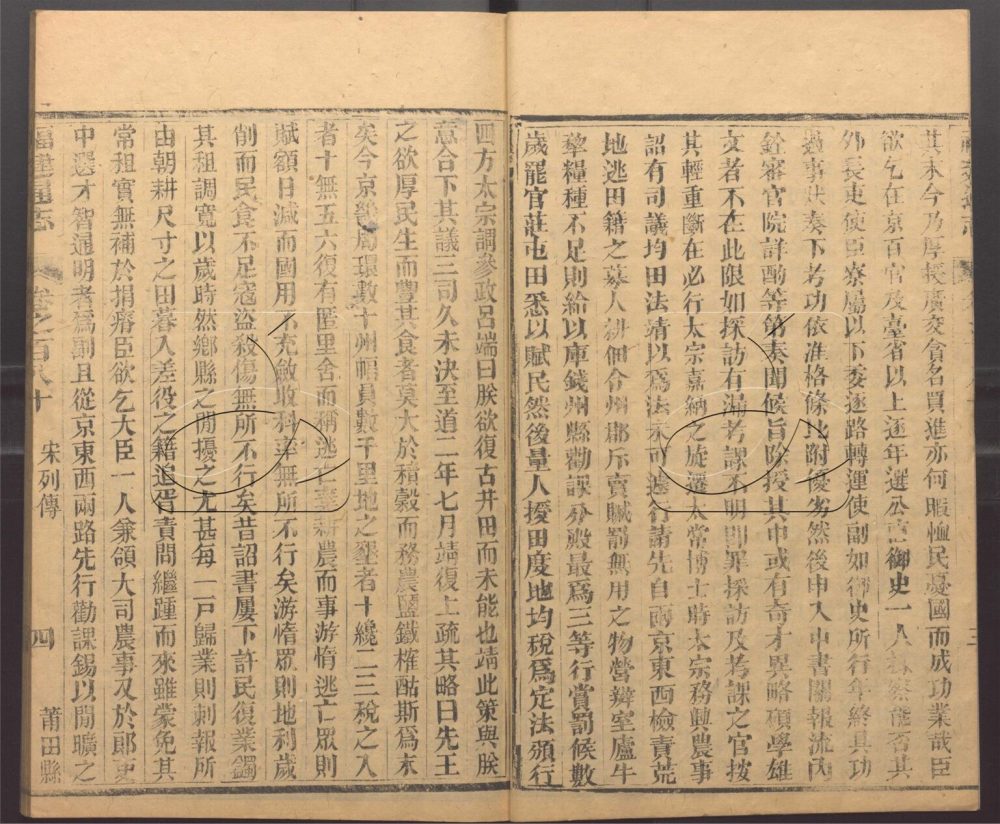 其末今乃厚祿廣交貪名買進亦何暇恤民憂國而成功業哉臣
欲乞在京百官及臺省以上逐年選公直御史一人 能否其
外長吏使臣寮屬以下委逐路轉運使副如御史所行年終具功
過事狀奏下考功依准格條比附優劣然後申入中書關報流內
銓審官院詳酌等第奏聞候旨除授其中或有奇才異略碩學雄
文者不在此限如採訪有漏考課不明則罪採訪及考課之官按
其輕重斷在必行太宗嘉納之旋遷太常博士時太宗務勸農事
詔有司議均田法靖以為法未可遽行請先自兩京東西檢責荒
地逃田籍之募人耕佃令州郡斥賣贓罰無用之物營辦室廬牛
犂糧種不足則給以庫錢州縣勸課分殿最為三等行賞罰候數
歲罷官莊屯田悉以賦民然後量人授田度地均稅為定法頒行
四方太宗謂參政呂端曰朕欲復古井田而未能也靖此策與朕
意合下其議三司久未決至道二年七月靖復上疏其略曰先王
之欲厚民生而豐其食者莫大於積穀而務農鹽鐵榷酤斯為末
矣今京畿周環數十州幅員數千里地之墾者十纔二三稅之入
者十無五六復有匿里舍而稱逃亡棄耕農而事游惰逃亡眾則
賦額日減而國用不充斂收科率無所不行矣游惰眾則地利歲
削而民食不足寇盜殺傷無所不行矣昔詔書屢下許民復業蠲
其租調寬以歲時然鄉縣之間擾之尤甚每一戶歸業則刺報所
由朝耕尺寸之田暮入差役之籍追胥責問繼踵而來雖蒙免其
常租實無補於捐瘠臣欲乞大臣一人兼領大司農事又於郎吏
中選才智通明者為副且從京東西兩路先行勸課錫以閒曠之
福建通志 卷之一百八十 宋列傳 四 莆田縣